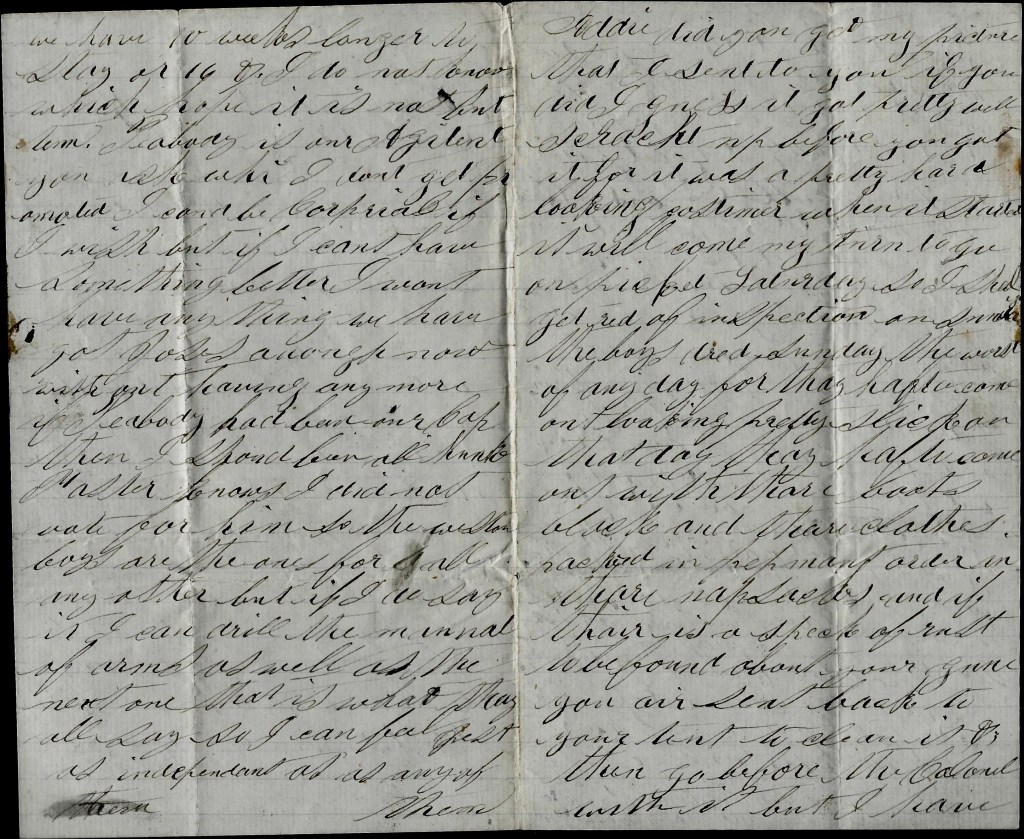 we have 10 weaks longer to
stay or 16 & I do not know
which hope it is not but
tenn. Peabody is our
you ask whi I dont get pr
omoted I coud be Corpreial if
I wish but if I cant have
something better I wont
have any thing we have
got anough now
without having any more
if Peabody had ben our Cap
then I shoud ben all
Faster knows I did not
vote for him so the
boys are the ones for all
any other but if I do say
it I can drill the mannal
of arms as well as the
next one that is what thay
all say so I can feal gest
as independant as as any of
them them
Addie did you get my picture
that I sent to you if you
did I guess it got pretty well
schracht up before you got
it for it was a pretty hard
looking costimer when it started
it will come my turn to go
on picket Saturday so I shal
get red of inspection on Sunday
the boys dred Sunday the worst
of any day for thay hafto come
out looking pretty slick on
that day thay hafto come
out with thare boots
black and thare clothes
packed in order in
thare napsacks and if
thair is a speck of rust
to be found about your gunn
you air sent back to
your tent to clean it &
then go before the Colonel
with it but I have